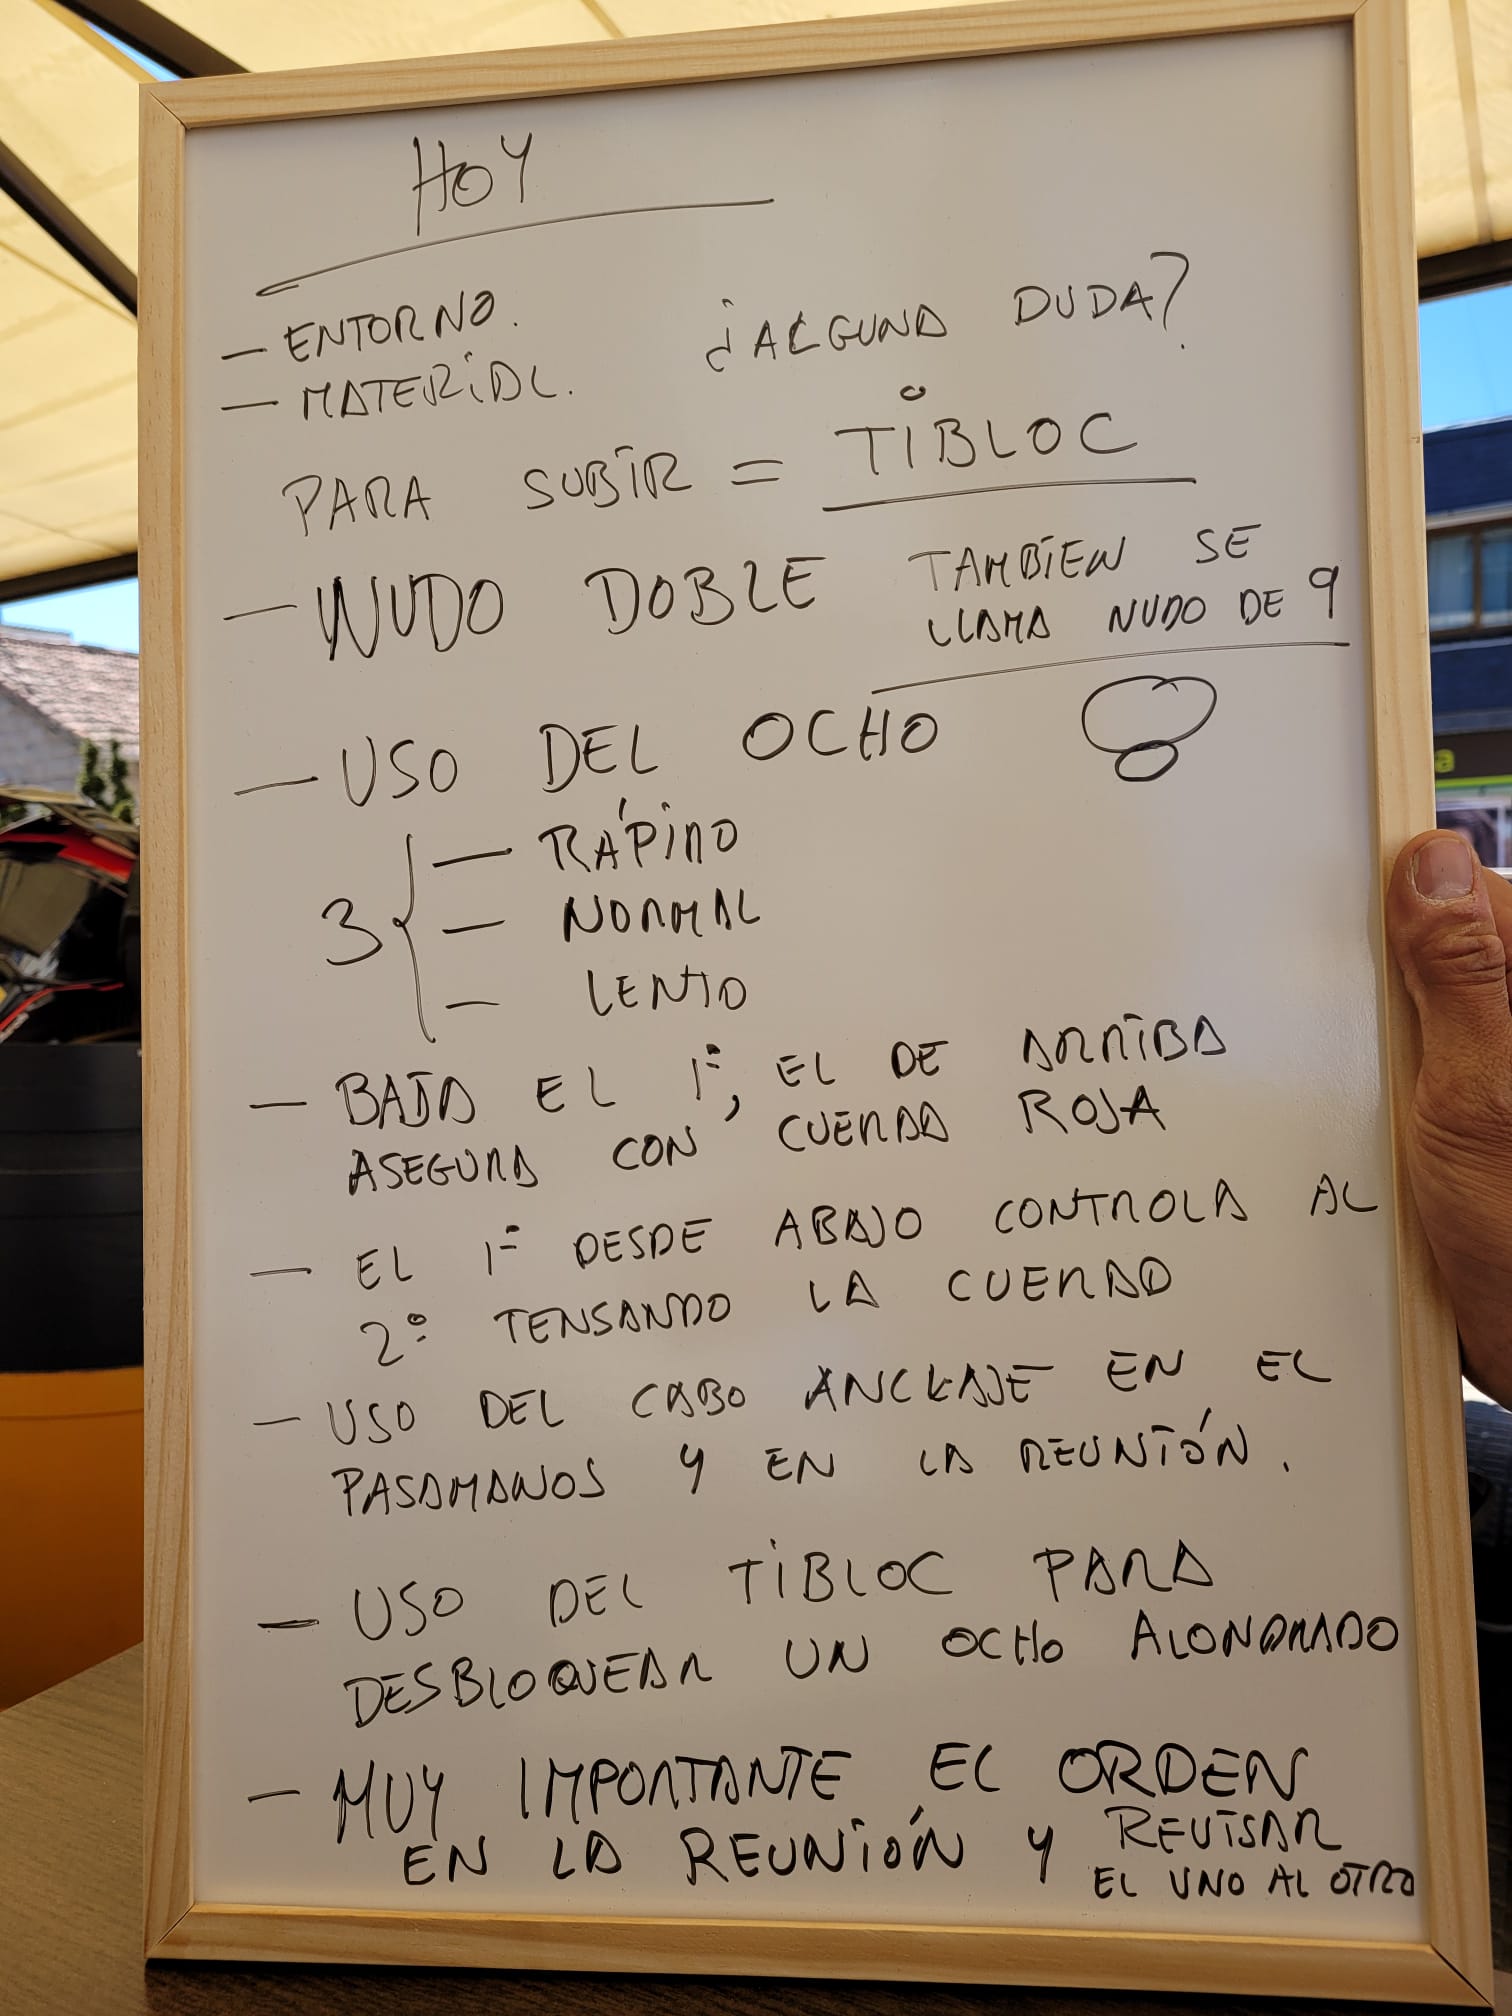 HOY
- ENTORNO.
- MATERIAL.
¿ALGUNA DUDA?
PARA SUBIR = TIBLOC
- NUDO DOBLE
TAMBIEN SE
LLAMA NUDO DE 9
- USO DEL OCHO
3 { - RÁPIDO
- NORMAL
- LENTO
- BAJA EL 1º, EL DE ARRIBA
ASEGURA CON CUERDA ROJA
- EL 1º DESDE ABAJO CONTROLA AL
2º TENSANDO LA CUERDA
- USO DEL CABO ANCLAJE EN EL
PASAMANOS Y EN LA REUNIÓN.
- USO DEL TIBLOC PARA
DESBLOQUEAR UN OCHO ALONDRADO
- MUY IMPORTANTE EL ORDEN
EN LA REUNIÓN Y REVISAR
EL UNO AL OTRO